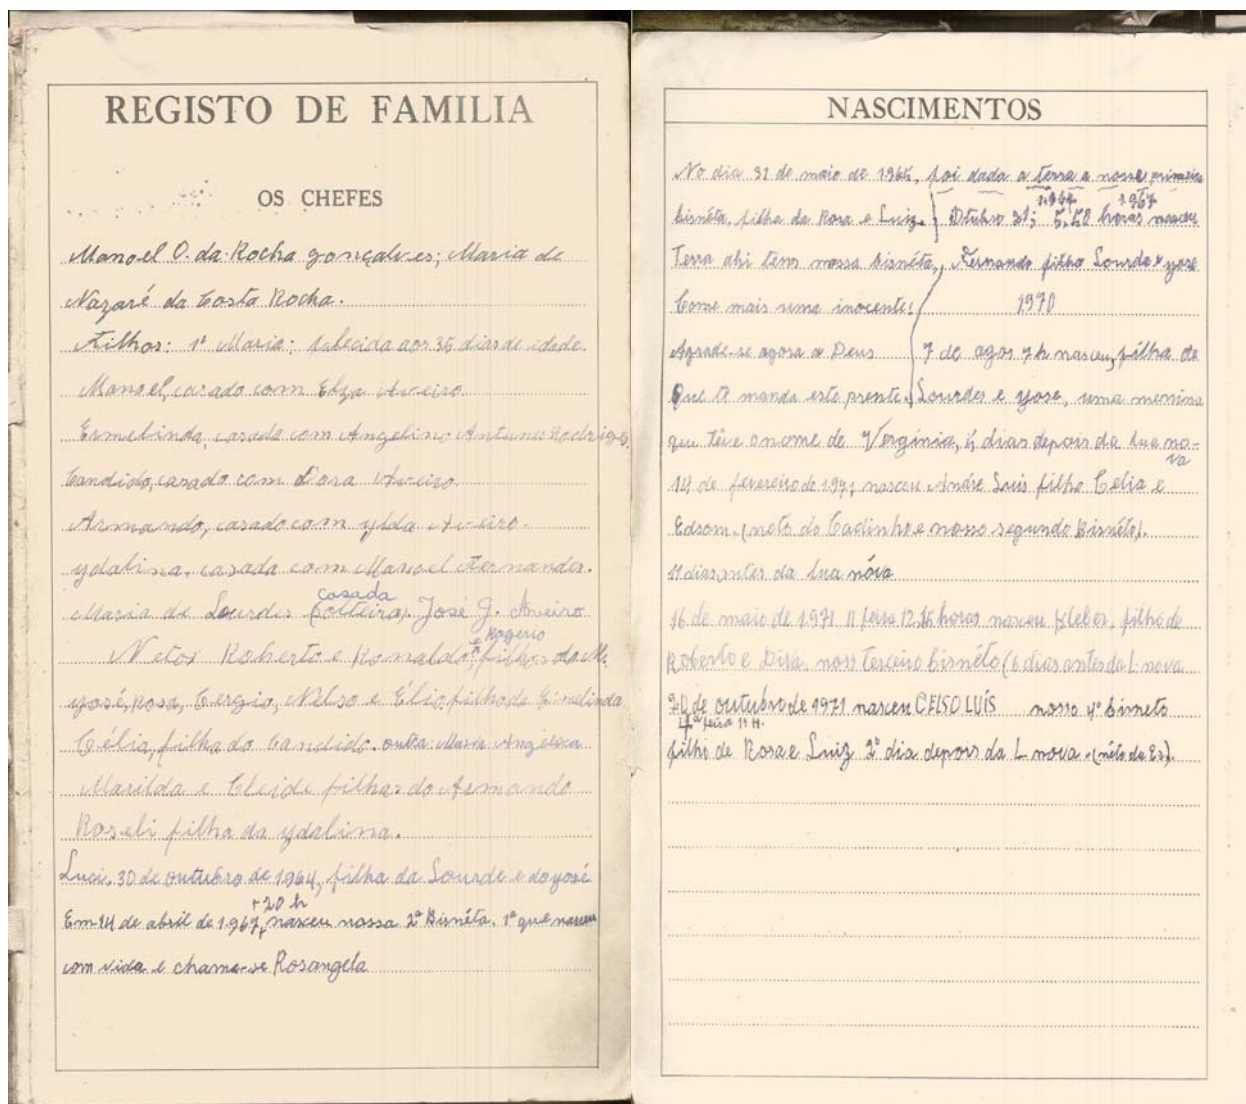 REGISTO DE FAMILIA
OS CHEFES
Manoel O. da Rocha gonçalves; Maria de
Nazaré da Costa Rocha.
Filhos: 1ª Maria; falecida aos 35 dias de idade.
Manoel, casado com Elza Aveiro.
Ermelinda, casada com Angelino Antunes Rodrigues.
Candido, casado com Dora Aveiro.
Armando, casado com ylda Aveiro.
ydalina, casada com Manoel Fernandes.
casada
Maria de Lourdes (solteira). José G. Aveiro
e Rogerio
Netos Roberto e Ronaldo, filhos do M.
yosé, Rosa, Cergio, Nelso e Élio, filho da Ermelinda
Célia, filha do Candido. outra: Maria Angelica
Marilda e Cleide filhas do Armando
Roseli filha da ydalina.
Luci, 30 de outubro de 1964, filha da Lourde e do yosé
+20 h
Em 14 de abril de 1967, nasceu nossa 2ª Bisnéta. 1ª que nasceu
com vida e chama-se Rosangela
NASCIMENTOS
No dia 31 de maio de 1965, foi dada a terra a nossa primeira
bisnéta, filha da Rosa e Luiz.
Terra ahi tens nossa bisnéta,
Come mais uma inocente;
Agrade-se agora a Deus
Que te manda este presente.
1964 1967
Otubro 31; 5,50 horas nasceu
Fernando filho Lourde e yose
1970
7 de agos 7 h nasceu, filha de
Lourdes e yose, uma menina
que têve o nome de Verginia, 5 dias depois da lua no-
va
14 de fevereiro de 1971 nasceu André Luis filho Celia e
Edsom. (neto do Cadinho e nosso segundo Bisnéto).
11 dias antes da lua nóva
16 de maio de 1971 II feira 12,15 horas nasceu Kleber, filho de
Roberto e Diva, noss Terceiro bisnéto (6 dias antes da L nova
20 de outubro de 1971 nasceu CELSO LUÍS nosso 4º bisneto
4ª feira 11 H.
filho de Rosa e Luiz 2º dia depois da L nova. (néto da Er).